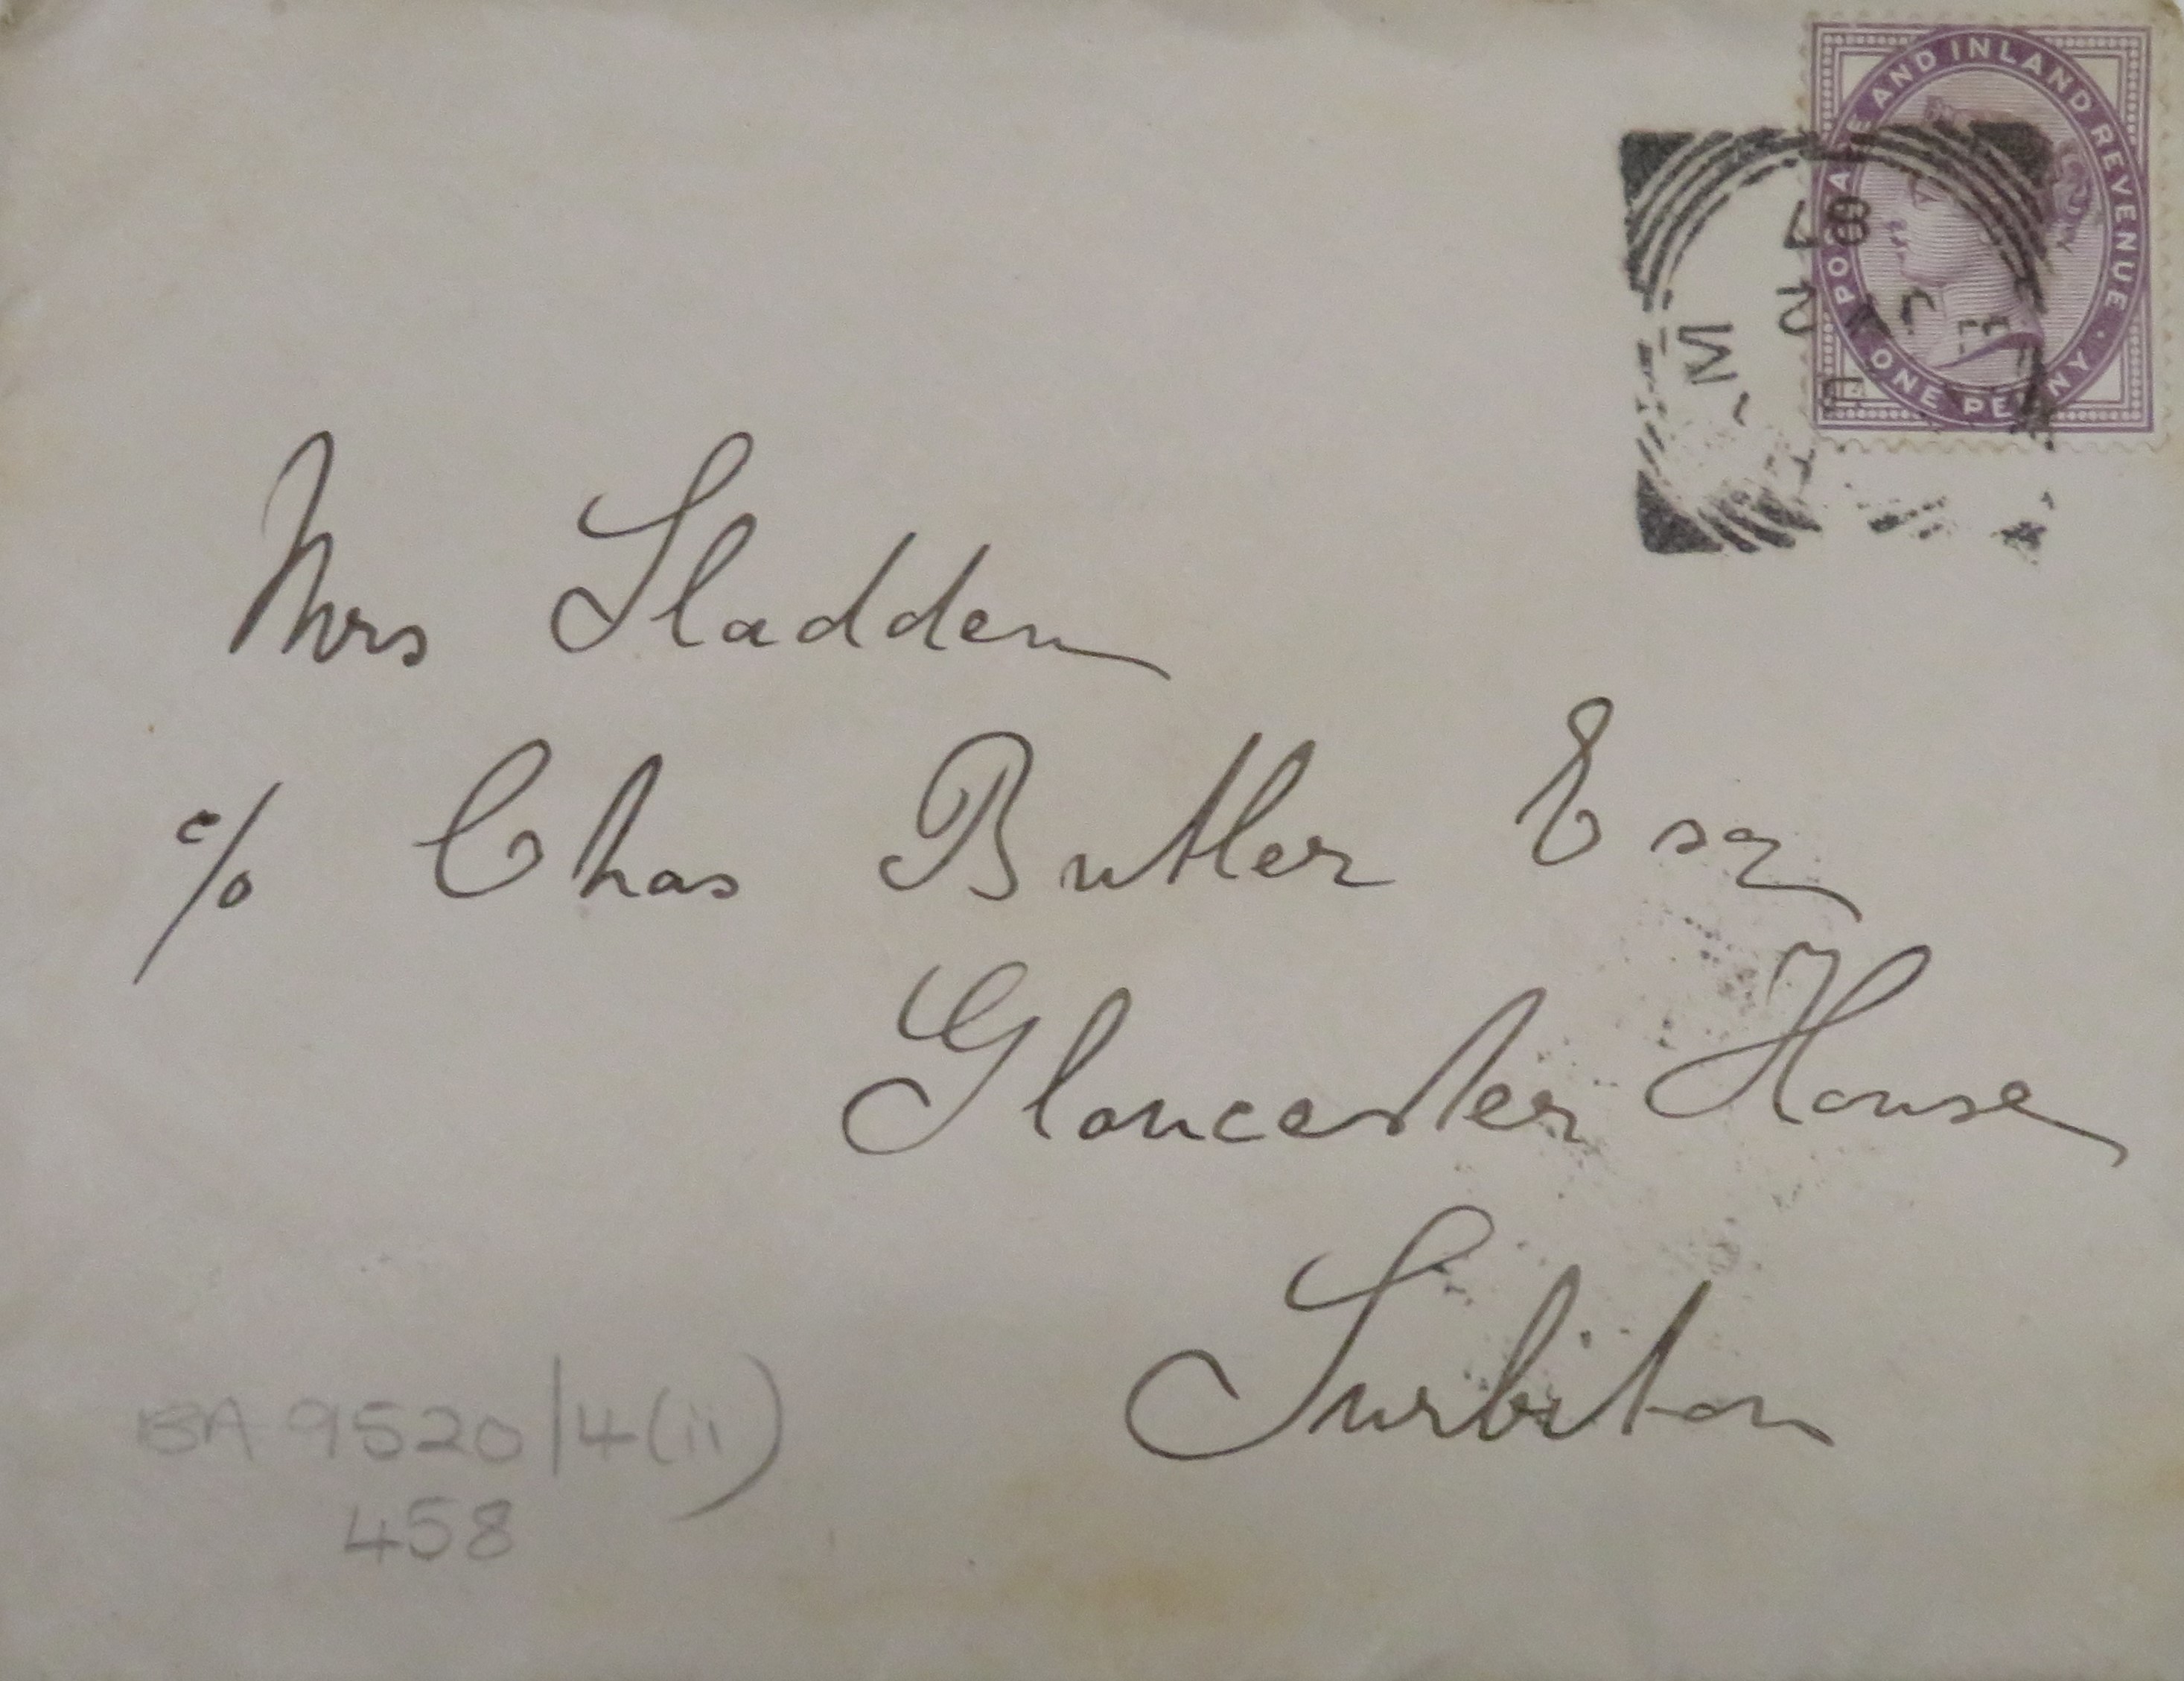 POSTAGE AND INLAND REVENUE · ONE PENNY ·
Mrs Sladden
c/o Chas Butler Esq
Gloucester House
Surbiton
BA 9520/4(ii)
458